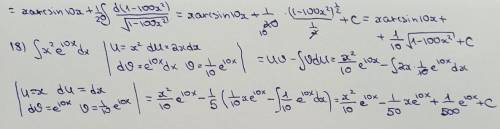 = x arcsin10x + 1/20 ∫ d(1-100x²)/√(1-100x²) = x arcsin10x + 1/20 · (1-100x²)^(1/2)/(1/2) + C = x arcsin10x +
+ 1/10 √(1-100x²) + C
18) ∫ x² e^(10x) dx | u = x² du = 2xdx dv = e^(10x) dx v = 1/10 e^(10x) | = uv - ∫ vdu = x²/10 e^(10x) - ∫ 2x · 1/10 e^(10x) dx
| u = x du = dx dv = e^(10x) v = 1/10 e^(10x) | = x²/10 e^(10x) - 1/5 (1/10 x e^(10x) - ∫ 1/10 e^(10x) dx) = x²/10 e^(10x) - 1/50 x e^(10x) + 1/500 e^(10x) + C